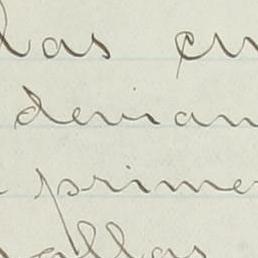 las en
devian
y prime
allas